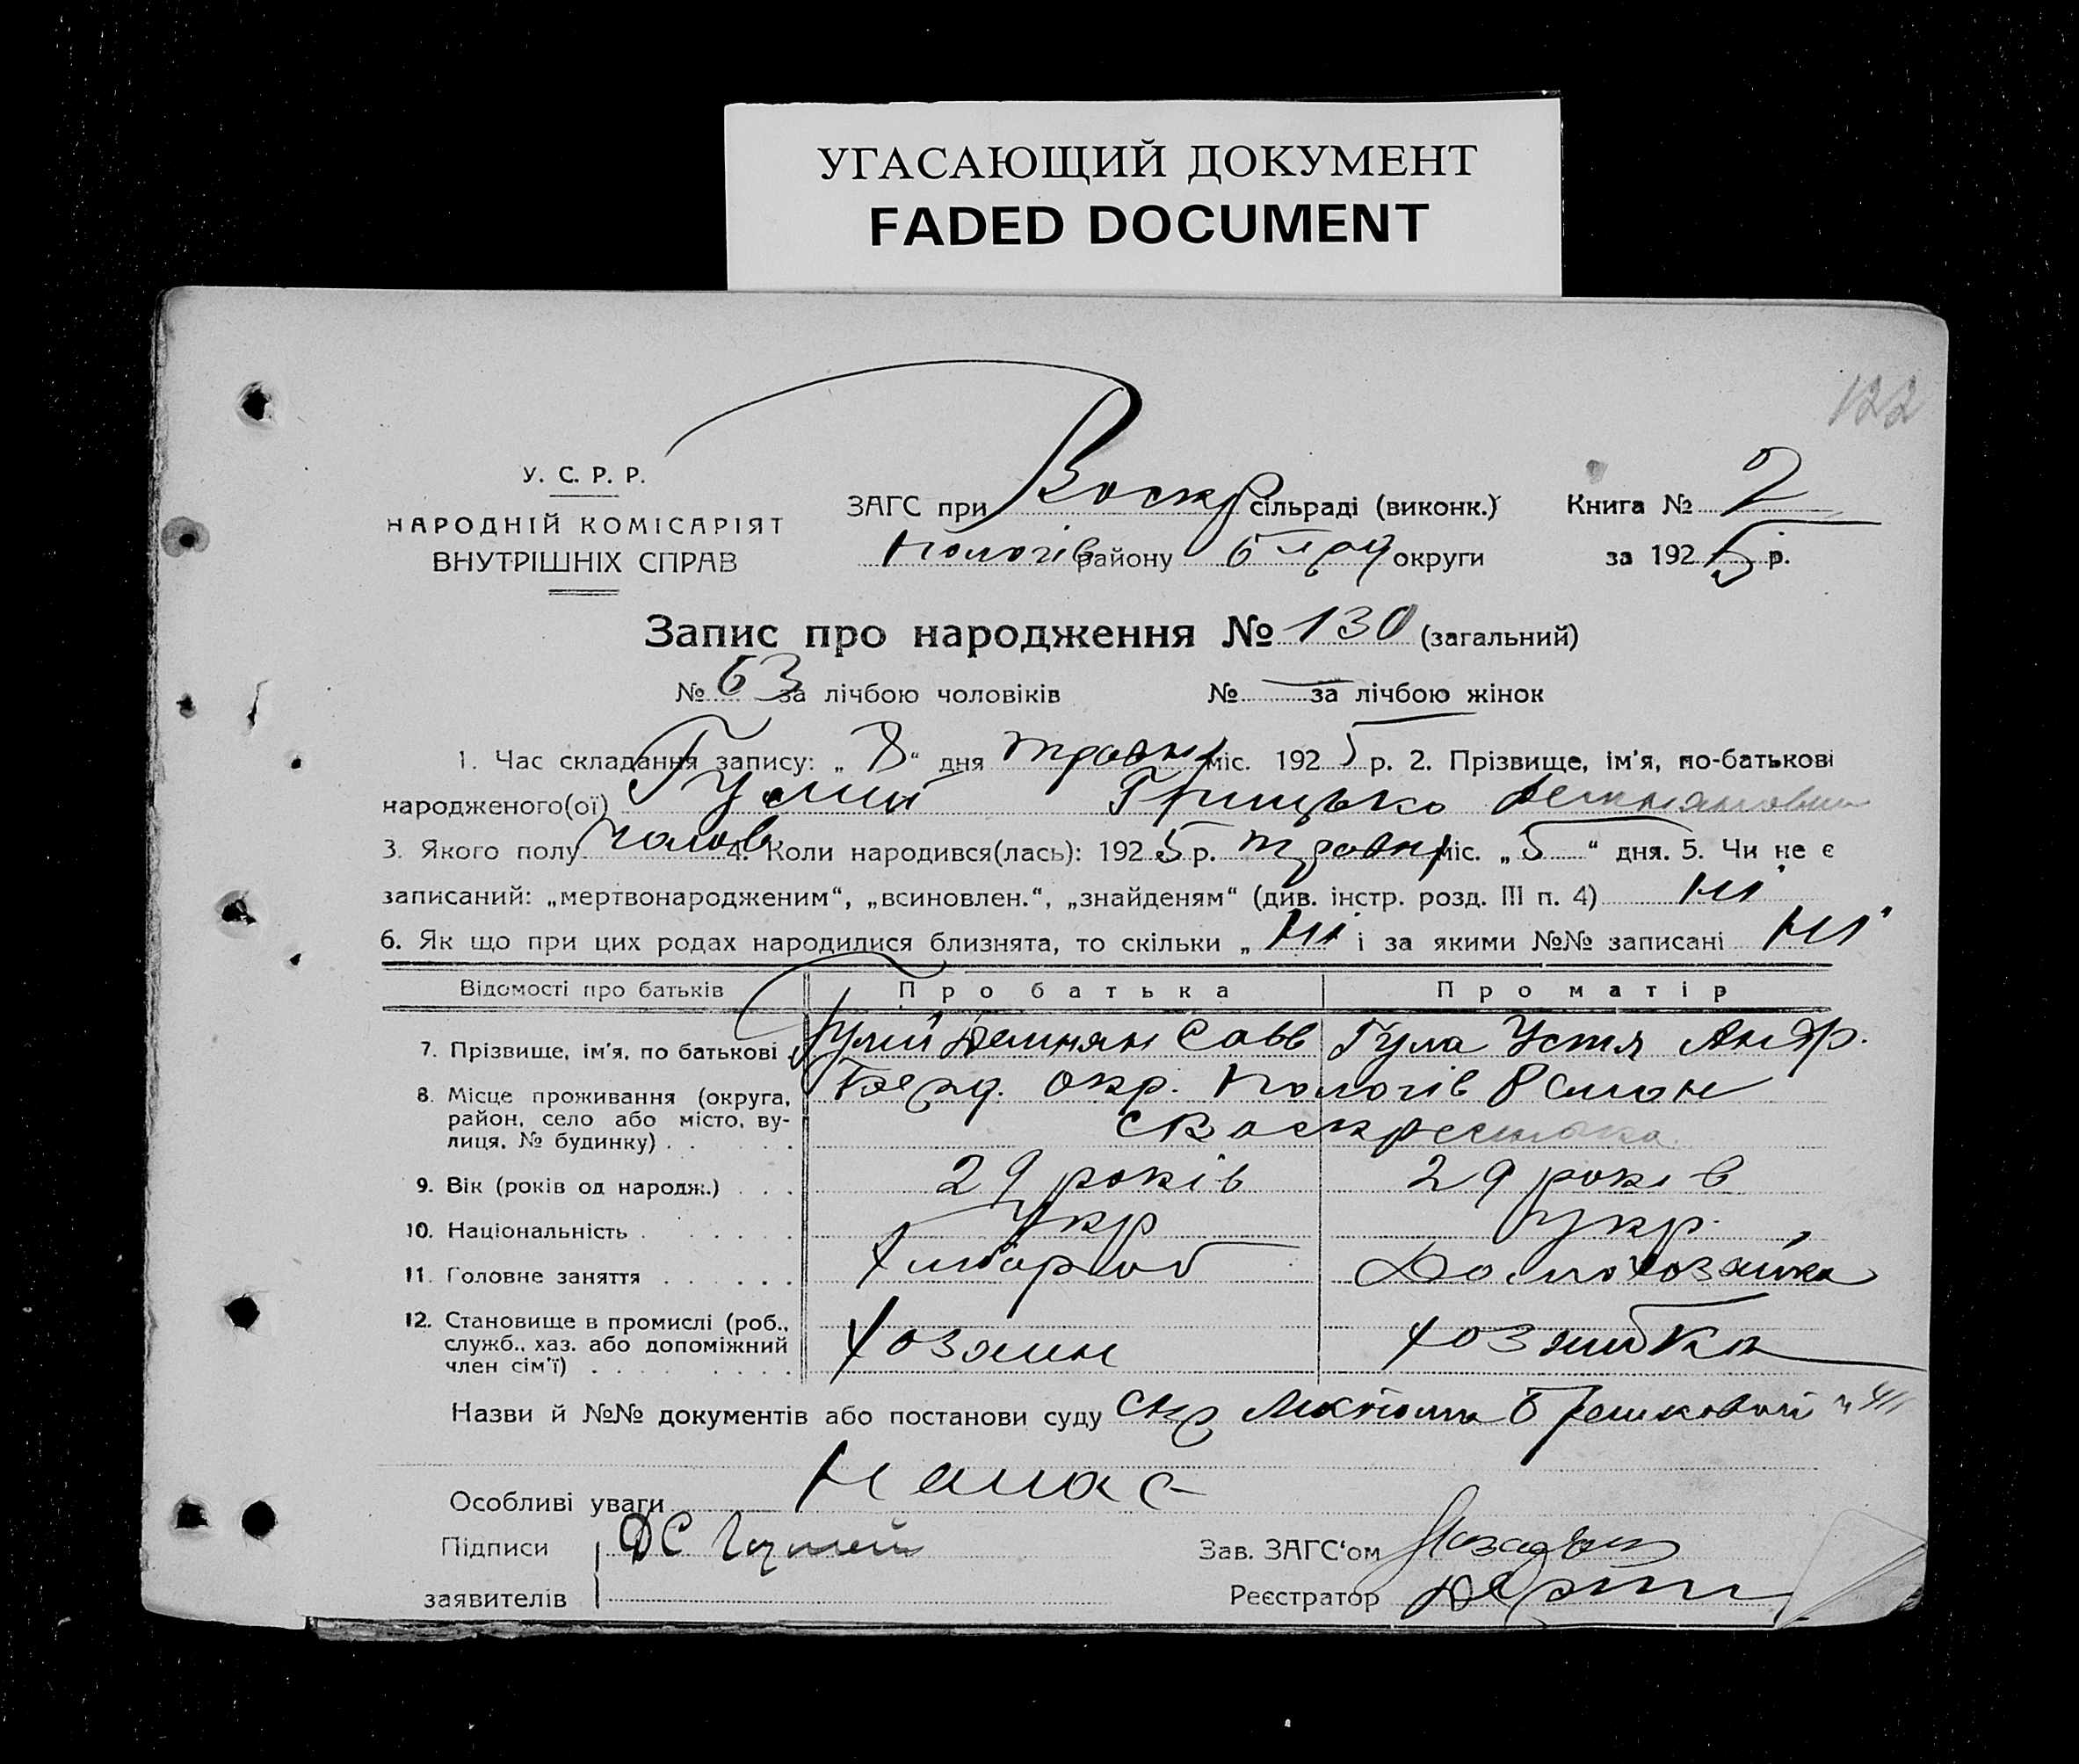 УГАСАЮЩИЙ ДОКУМЕНТ
FADED DOCUMENT
122
У. С. Р. Р.
НАРОДНІЙ КОМІСАРІЯТ
ВНУТРІШНІХ СПРАВ
ЗАГС при Воскр сільраді (виконк.) Книга № 2
Пологів району округи за 1925 р.
Запис про народження № 130 (загальний)
№ 63 за лічбою чоловіків № — за лічбою жінок
1. Час складання запису: „ 8 " дня травня міс. 1925 р. 2. Прізвище, ім'я, по-батькові
народженого(ої) Гулий Грицько Демянович
3. Якого полу чолов 4. Коли народився(лась): 1925 р. травня міс. „ 5 " дня. 5. Чи не є
записаний: „мертвонародженим", „всиновлен.", „знайденям" (див. інстр. розд. III п. 4) ні
6. Як що при цих родах народилися близнята, то скільки „ ні і за якими №№ записані ні
Відомості про батьків Про батька Про матір
7. Прізвище, ім'я, по батькові Гулий Демян Савв Гула Устя Андр.
8. Місце проживання (округа, район, село або місто, вулиця, № будинку) Бердг. окр. Пологів
с Воскресенька
9. Вік (років од народж.) 29 років 29 років
10. Національність Укр укр.
11. Головне заняття Хлібороб Домохозайка
12. Становище в промислі (роб., служб., хаз. або допоміжний член сім'ї) Хозяин хозяйка
Назви й №№ документів або постанови суду
Особливі уваги Немає
Підписи ДС Гулий Зав. ЗАГС'ом
заявителів Реєстратор